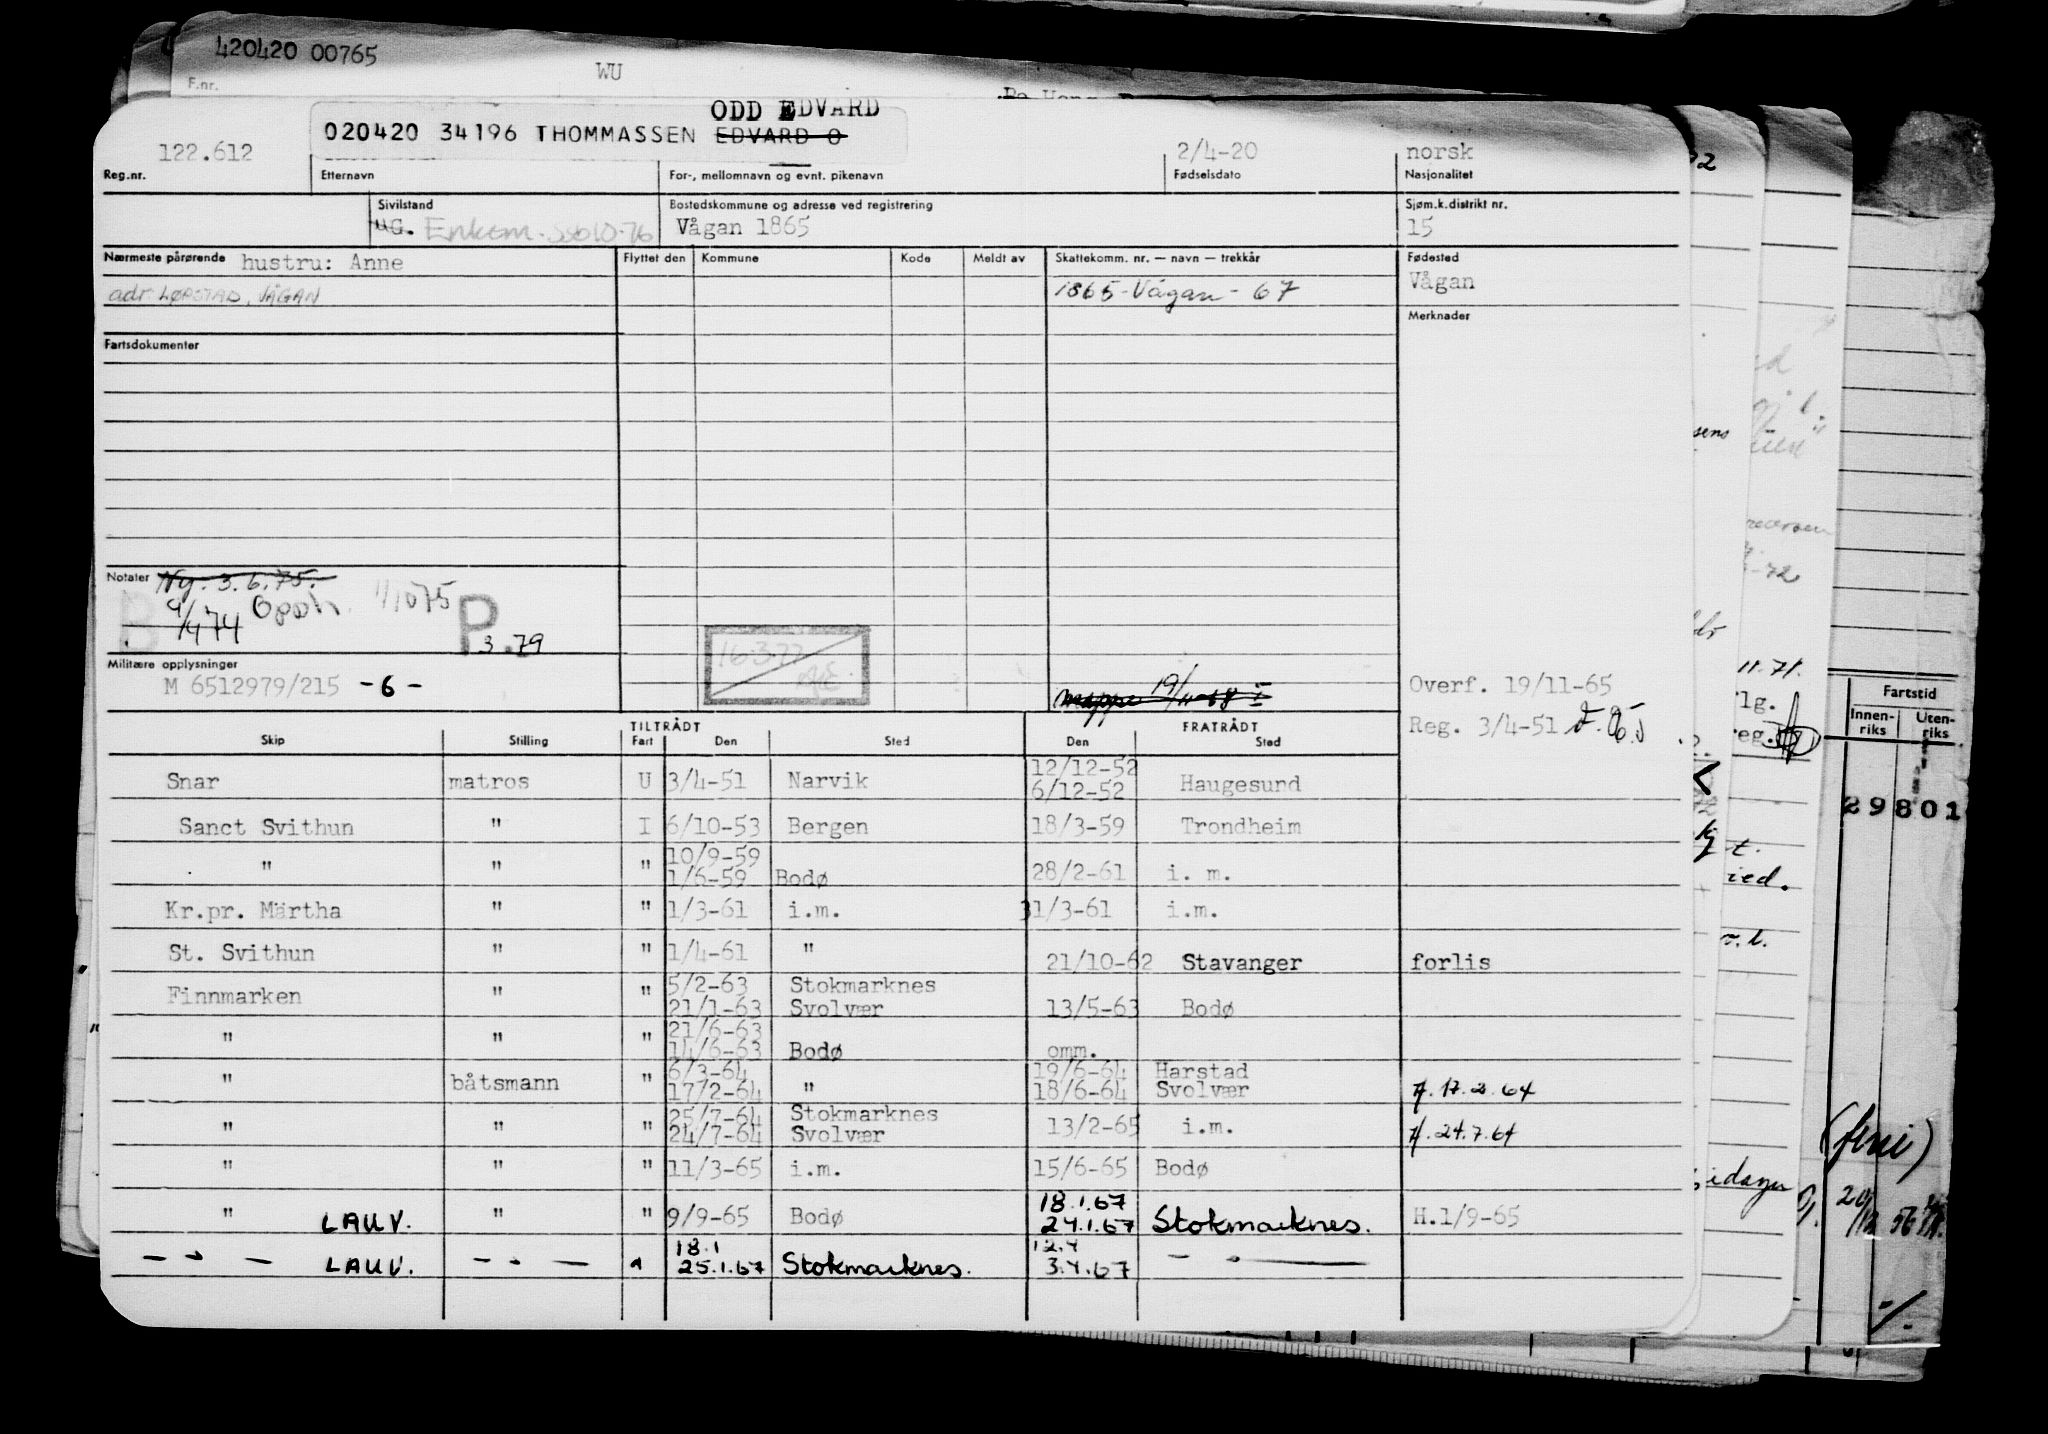 420420 00765
F.nr.
WU
ODD EDVARD
020420 34196 THOMMASSEN EDVARD O
122.612
2/4-20
norsk
Reg.nr. Etternavn For-, mellomnavn og evnt. pikenavn Fødselsdato Nasjonalitet
Sivilstand Bostedskommune og adresse ved registrering Sjøm.k.distrikt nr.
UG. Vågan 1865 15
Nærmeste pårørende hustru: Anne Flyttet den Kommune Kode Meldt av Skattekomm. nr. — navn — trekkår Fødested
adr LØPSTAD, VÅGAN 1865-Vågan- 67 Vågan
Merknader
Fartsdokumenter
Notater Ny. 3.6.75.
9/474 Opph. 11075
B P 3.79
16.3.77
Militære opplysninger
M 6512979/215 -6-
mappe 19/11-68 I
Overf. 19/11-65
Reg. 3/4-51
TILTRÅDT FRATRÅDT
Skip Stilling Fart Den Sted Den Sted
Snar matros U 3/4-51 Narvik 12/12-52
6/12-52 Haugesund
Sanct Svithun " I 6/10-53 Bergen 18/3-59 Trondheim
" " " 10/9-59
1/6-59 Bodø 28/2-61 i. m.
Kr.pr. Märtha " " 1/3-61 i.m. 31/3-61 i.m.
St. Svithun " " 1/4-61 " 21/10-62 Stavanger forlis
Finnmarken " " 5/2-63 Stokmarknes
21/1-63 Svolvær 13/5-63 Bodø
" " " 21/6-63
14/6-63 Bodø omm.
" båtsmann " 6/3-64 19/6-64 Harstad
17/2-64 " 18/6-64 Svolvær 17.2.64
" " " 25/7-64 Stokmarknes
24/7-64 Svolvær 13/2-65 i.m. 24.7.64
" " " 11/3-65 i.m. 15/6-65 Bodø
" LAUV. " " 9/9-65 Bodø 18.1.67
24.1.67 Stokmarknes. H.1/9-65
— " — LAUV. — " — " 18.1
25.1.67 Stokmarknes. 12.4
3.4.67 — " —
Fartstid
Innen-
riks
Uten-
riks
29801